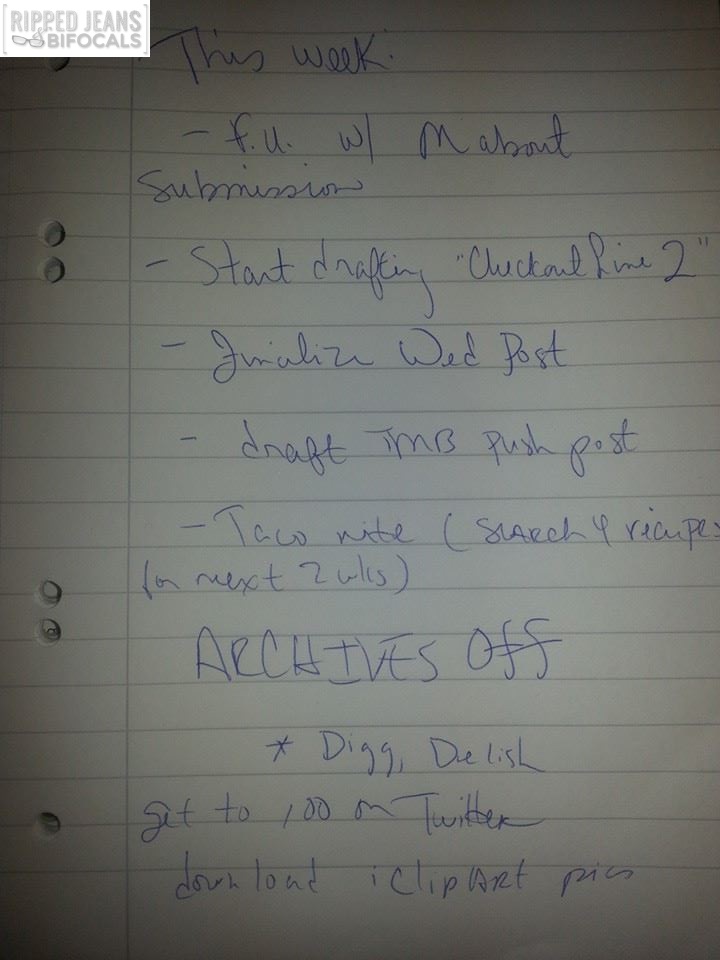 RIPPED JEANS
BIFOCALS
This week:
- f.u. w/ M about
Submission
- Start drafting "Checkout Line 2"
- Finalize Wed Post
- draft TMB push post
- Taco nite (SEARCH 4 recipes
for next 2 wks)
ARCHIVES OFF
* Digg, Delish
get to 100 on Twitter
download iClipART pics